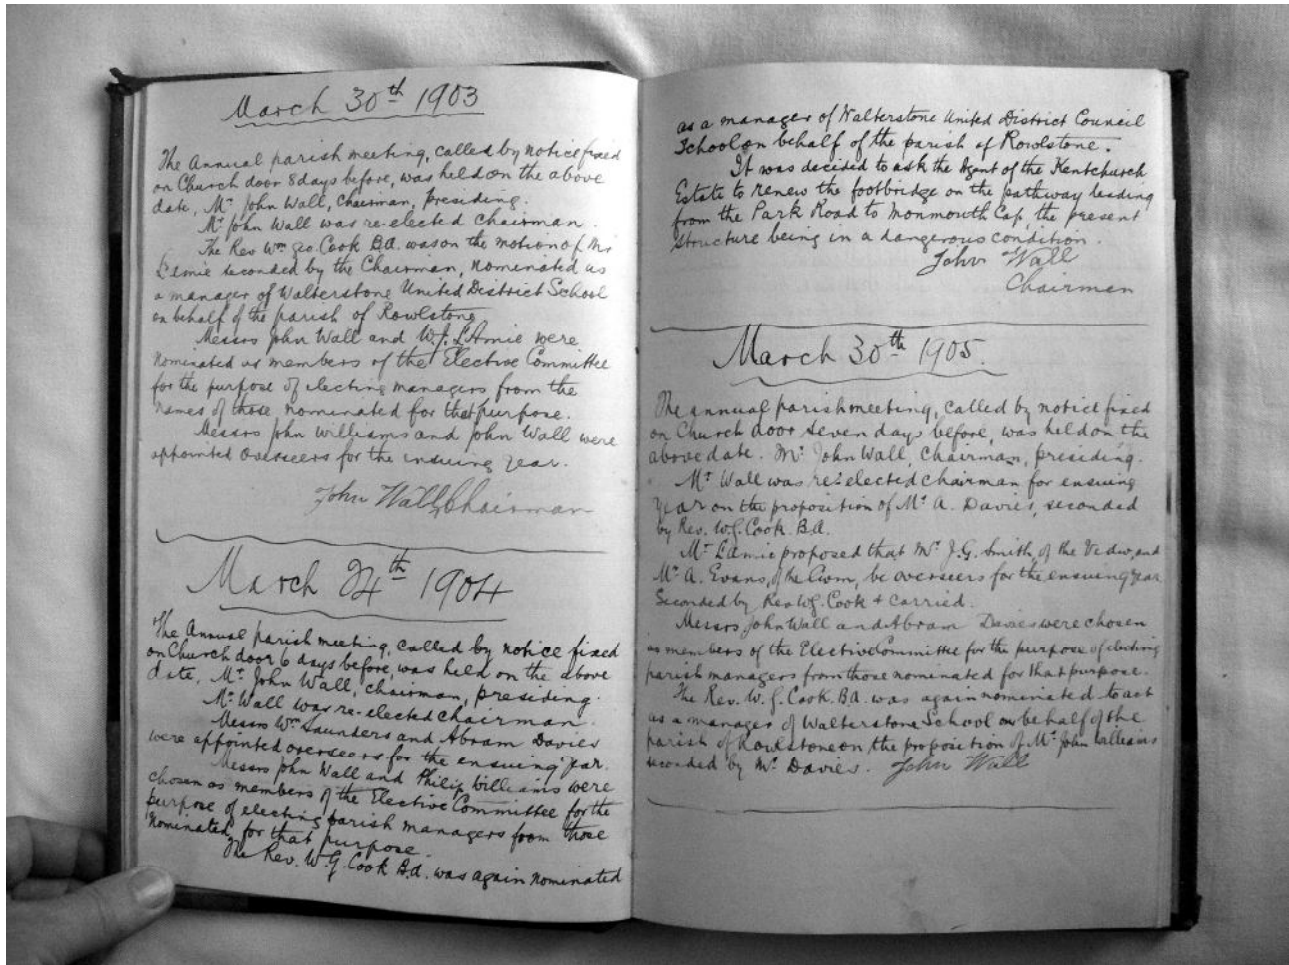 March 30th 1903
The Annual parish meeting, called by notice fixed
on Church door 8 days before, was held on the above
date, Mr John Wall, Chairman, presiding.
Mr John Wall was re-elected Chairman.
The Rev Wm Geo. Cook B.A. was on the motion of Mr
L'Amie seconded by the Chairman, nominated as
a manager of Walterstone United District School
on behalf of the parish of Rowlstone
Messrs John Wall and W. J. L'Amie were
nominated as members of the Elective Committee
for the purpose of electing managers from the
names of those nominated for that purpose.
Messrs John Williams and John Wall were
appointed overseers for the ensuing year.
John Wall, Chairman
March 24th 1904
The Annual parish meeting, called by notice fixed
on Church door 6 days before, was held on the above
date, Mr John Wall, Chairman, presiding.
Mr Wall was re-elected chairman.
Messrs Wm Saunders and Abram Davies
were appointed overseers for the ensuing year.
Messrs John Wall and Philip Williams were
chosen as members of the Elective Committee for the
purpose of electing parish managers from those
nominated for that purpose.
The Rev. W. G. Cook B.A. was again nominated
as a manager of Walterstone United District Council
School on behalf of the parish of Rowlstone.
It was decided to ask the Agent of the Kentchurch
Estate to renew the footbridge on the pathway leading
from the Park Road to Monmouth Cap, the present
structure being in a dangerous condition.
John Wall
Chairman
March 30th 1905.
The annual parish meeting, called by notice fixed
on Church door seven days before, was held on the
above date. Mr John Wall, Chairman, presiding.
Mr Wall was re-elected chairman for ensuing
year on the proposition of Mr A. Davies, seconded
by Rev. W. G. Cook. B.A.
Mr L'Amie proposed that Mr J. G. Smith, of the Vedw, and
Mr A. Evans, of the Cwm, be overseers for the ensuing year
Seconded by Rev W. G. Cook & carried.
Messrs John Wall and Abram Davies were chosen
as members of the Elective Committee for the purpose of electing
parish managers from those nominated for that purpose.
The Rev. W. G. Cook. B.A. was again nominated to act
as a manager of Walterstone School on behalf of the
parish of Rowlstone on the proposition of Mr John Williams
seconded by Mr Davies. John Wall